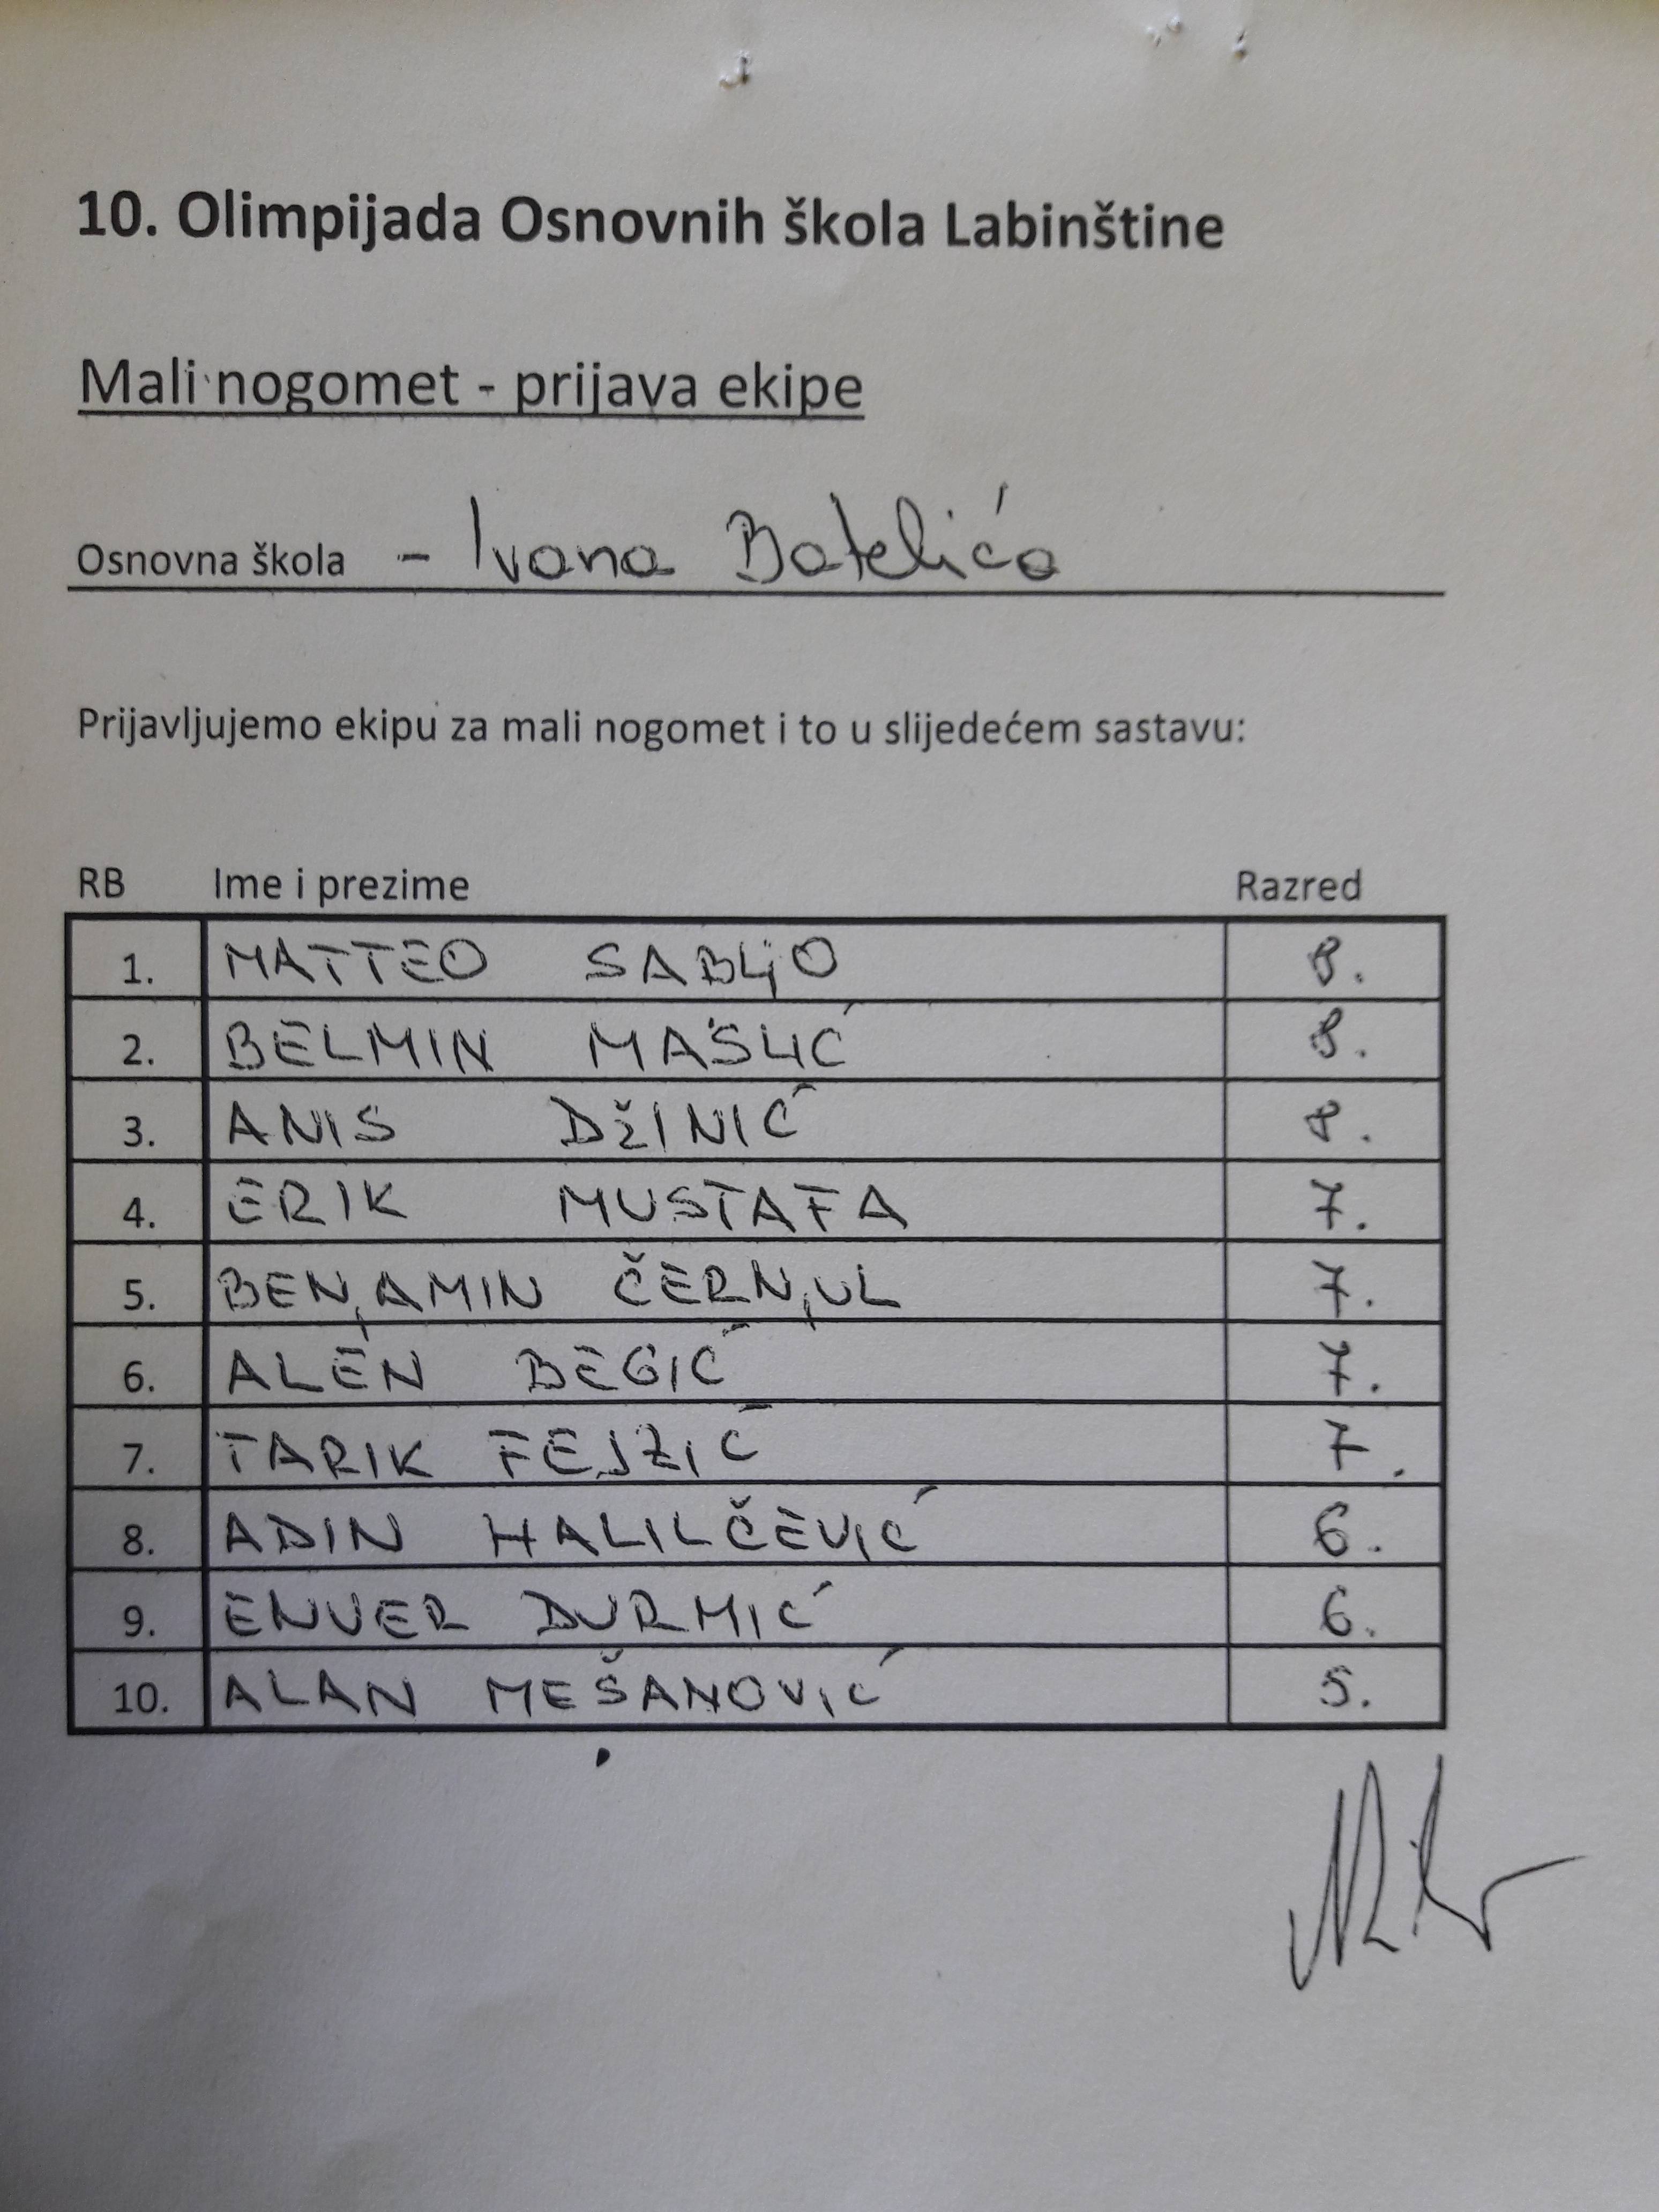 10. Olimpijada Osnovnih škola Labinštine
Mali nogomet - prijava ekipe
Osnovna škola - Ivana Batelića
Prijavljujemo ekipu za mali nogomet i to u slijedećem sastavu:
RB Ime i prezime Razred
1. MATTEO SABLJO 8.
2. BELMIN MAŠLIĆ 8.
3. ANIS DŽINIĆ 8.
4. ERIK MUSTAFA 7.
5. BENJAMIN ČERNJUL 7.
6. ALEN BEGIĆ 7.
7. TARIK FEJZIĆ 7.
8. ADIN HALILČEVIĆ 6.
9. ENVER DURMIĆ 6.
10. ALAN MEŠANOVIĆ 5.